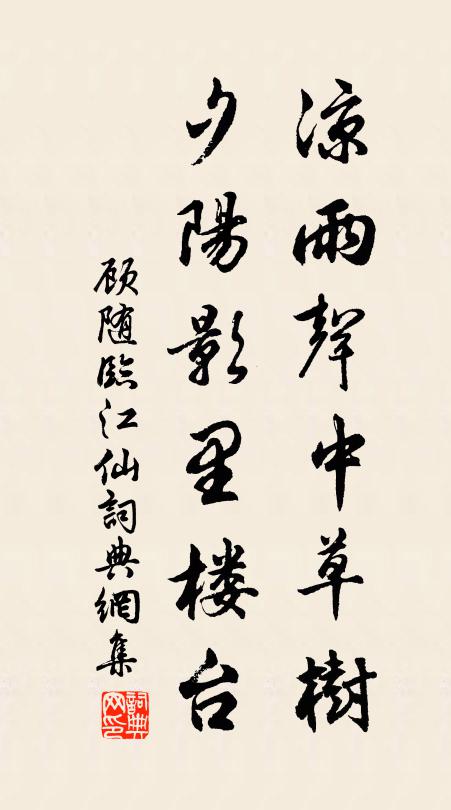 涼雨聲中草樹
夕陽影里楼台
顾随臨江仙詞典網集
詞典网印